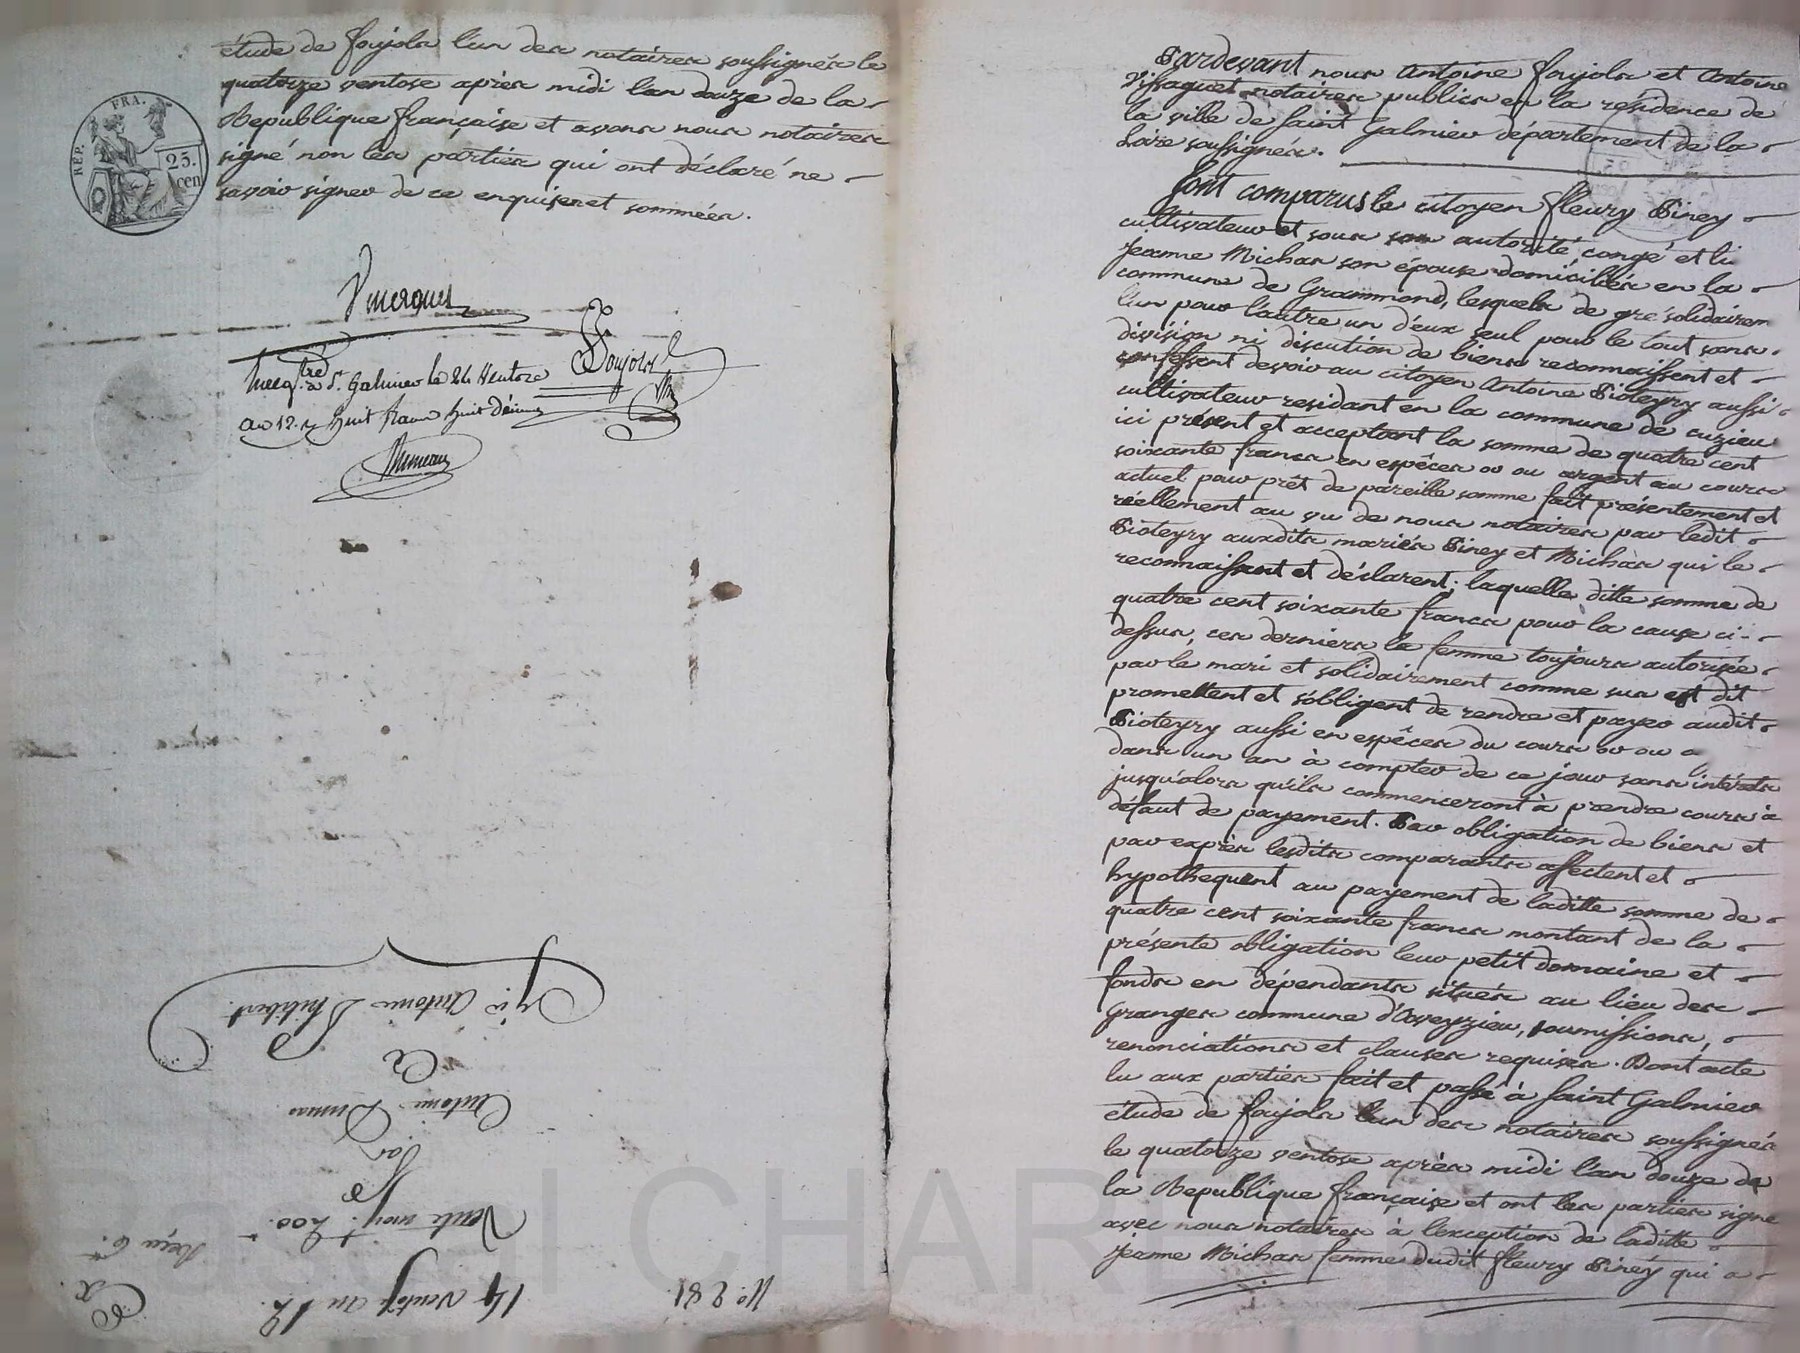 étude de foujols l'un des notaires soussignés le
quatorze ventose après midi l'an douze de la
Republique française et avons nous notaires
signé non les parties qui ont déclaré ne
savoir signer de ce enquises et sommées.
RÉP. FRA.
25.
cen
Foujols
à St. Galmier le 24 Ventose
an 12. huit francs huit décimes
N.° 281.
14 ventose an 12.
Vente moy.t 200.
Par
Antoine Dumas
à
Antoine Philibert
Reçu 6.
Pardevant nous Antoine foujols et Antoine
Vissaguet notaires publics en la résidence de
la ville de saint Galmier département de la
Loire soussignés.
sont comparus le citoyen fleury Piney
cultivateur et sous son autorité, congé et li
jeanne Michas son épouse domiciliés en la
commune de Grammond, lesquels de gré solidairem
l'un pour l'autre un d'eux seul pour le tout sans
division ni discution de biens reconnaissent et
confessent devoir au citoyen Antoine Pioteyry aussi
cultivateur residant en la commune de cuzieu
ici présent et acceptant la somme de quatre cent
soixante francs en espéces or ou argent au cours
actuel pour prêt de pareille somme fait présentement et
réellement au vu de nous notaires par ledit
Pioteyry auxdits mariés Piney et Michas qui le
reconnaissent et déclarent; laquelle ditte somme de
quatre cent soixante francs pour la cause ci-
dessus, ces derniers la femme toujours autorisée
par le mari et solidairement comme sus est dit
promettent et s'obligent de rendre et payer audit
Pioteyry aussi en espéces du cours or ou a
dans un an à compter de ce jour sans intérêts
jusqu'alors qu'ils commenceront à prendre cours à
défaut de payement. Par obligation de biens et
par exprès lesdits comparants affectent et
hypothequent au payement de laditte somme de
quatre cent soixante francs montant de la
présente obligation leur petit domaine et
fonds en dépendants situés au lieu des
Granges commune d'Aveyzieu, soumissions,
renonciations et clauses requises. Dont acte
lu aux parties fait et passé à saint Galmier
étude de foujols l'un des notaires soussignés
le quatorze ventose après midi l'an douze de
la Republique française et ont les parties signé
avec nous notaires à l'exception de laditte
jeanne Michas femme dudit fleury Piney qui a
CHAR